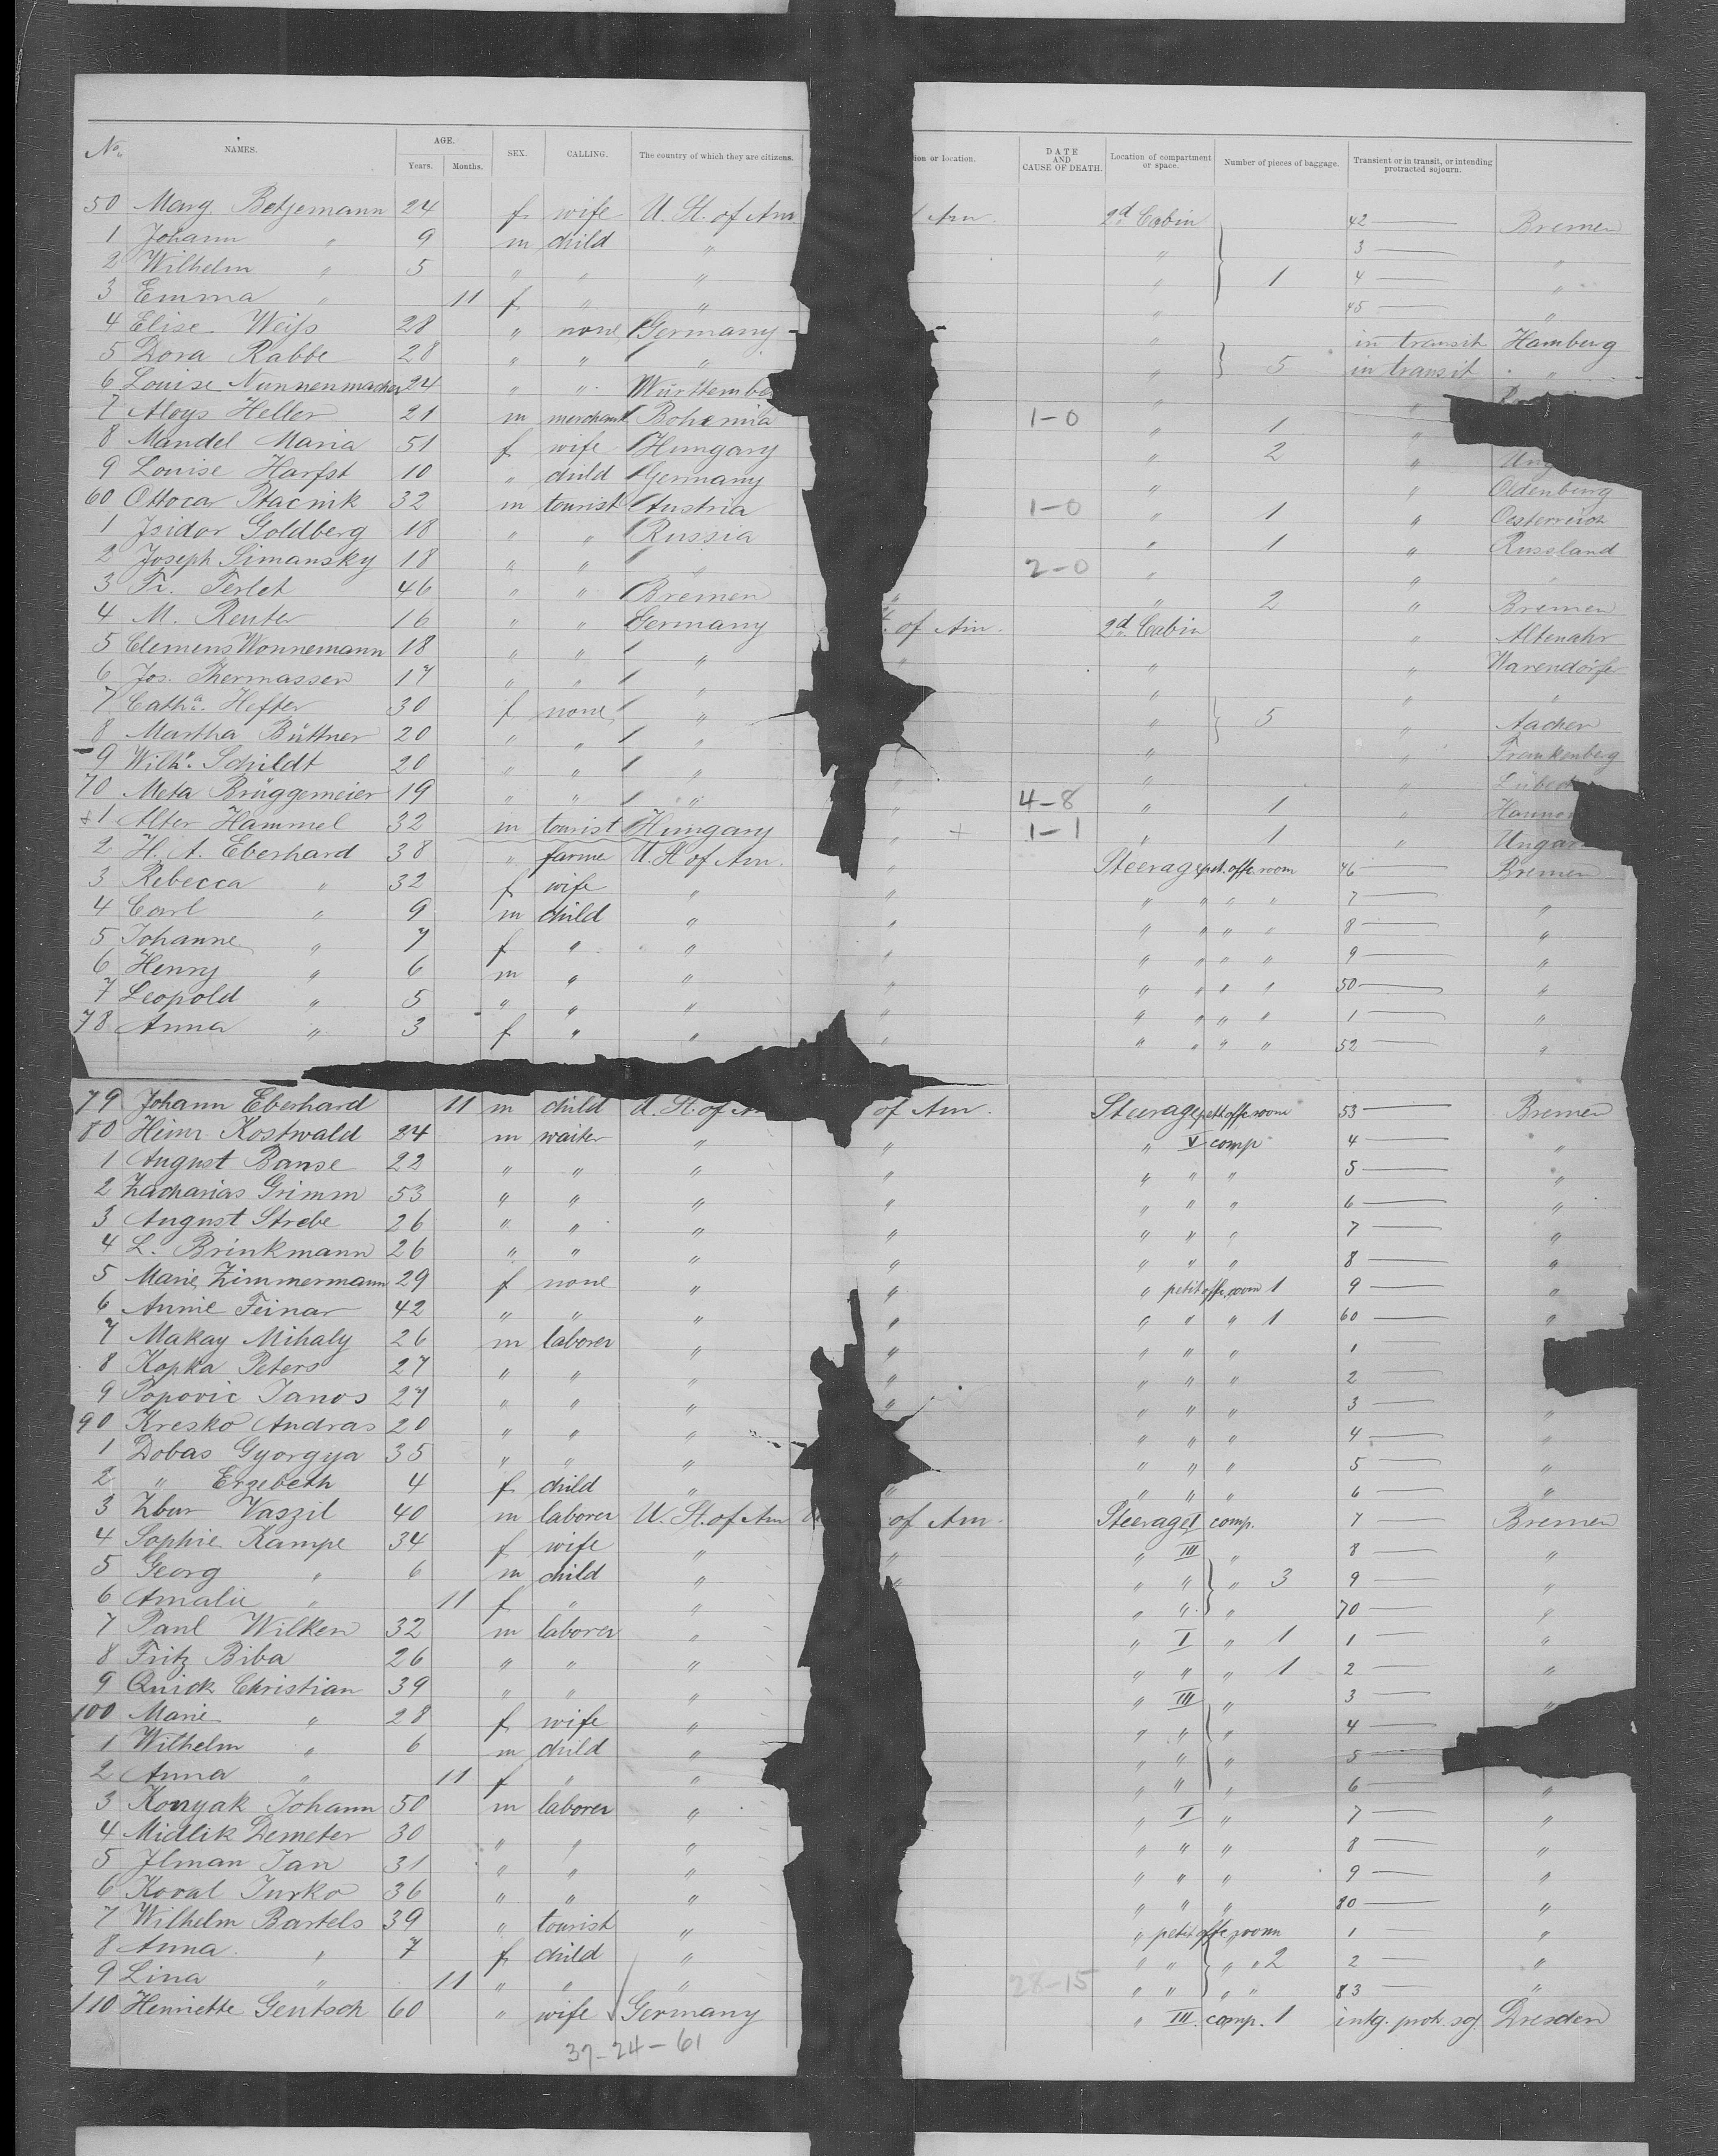 No. NAMES. AGE. Years. Months. SEX. CALLING. The country of which they are citizens. ion or location. DATE AND CAUSE OF DEATH. Location of compartment or space. Number of pieces of baggage. Transient or in transit, or intending protracted sojourn.
50 Marg. Betjemann 24 f wife U. St. of Am Am. 2d Cabin 42 — Bremen
1 Johann " 9 m child " " 3 — "
2 Wilhelm " 5 " " " " 1 4 — "
3 Emma " 11 f " " " 45 — "
4 Elise Weiss 28 " none Germany " in transit Hamburg
5 Dora Rabbe 28 " " " " 5 in transit "
6 Louise Nunnenmacher 24 " " Württembe " "
7 Aloys Heller 21 m merchant Bohemia 1-0 " 1 "
8 Mandel Maria 51 f wife Hungary " 2 " Ung
9 Louise Harfst 10 " child Germany " " Oldenburg
60 Ottocar Ptacnik 32 m tourist Austria 1-0 " 1 " Oesterreich
1 Isidor Goldberg 18 " " Russia " 1 " Russland
2 Joseph Simansky 18 " " " 2-0 " " "
3 Fr. Terlet 46 " " Bremen " " 2 " Bremen
4 M. Reuter 16 " " Germany of Am. 2d Cabin " Altenahr
5 Clemens Wonnemann 18 " " " " " " Warendorf
6 Jos. Thermassen 17 " " " " " "
7 Catha. Hefter 30 f none " " 5 " Aachen
8 Martha Büttner 20 " " " " " Frankenberg
9 Wilhe. Schildt 20 " " " " " " Lübeck
70 Meta Brüggemeier 19 " " " " 4-8 " 1 " Hanno
+1 Alter Hammel 32 m tourist Hungary " + 1-1 " 1 " Ungar
2 H. A. Eberhard 38 " farmer U. St. of Am. " Steerage pet. offc. room 46 — Bremen
3 Rebecca " 32 f wife " " " " " " 7 — "
4 Carl " 9 m child " " " " " " 8 — "
5 Johanne " 7 f " " " " " " " 9 — "
6 Henry " 6 m " " " " " " " 50 — "
7 Leopold " 5 " " " " " " " " 1 — "
78 Anna " 3 f " " " " " " " 52 — "
79 Johann Eberhard 11 m child U. St. of A of Am. Steerage pett offc room 53 — Bremen
80 Heinr. Kostwald 24 m waiter " " " V comp 4 — "
1 August Banse 22 " " " " " " " 5 — "
2 Zacharias Grimm 53 " " " " " " " 6 — "
3 August Strebe 26 " " " " " " " 7 — "
4 L. Brinkmann 26 " " " " " " " 8 — "
5 Marie Zimmermann 29 f none " " " petit offc. room 1 9 — "
6 Annie Feinar 42 " " " " " " " 1 60 — "
7 Makay Mihaly 26 m laborer " " " " " 1 —
8 Kopka Peters 27 " " " " " " " 2 —
9 Popovic Janos 27 " " " " " " " 3 — "
90 Kresko Andras 20 " " " " " " 4 — "
1 Dobas Gyorgya 35 " " " " " " 5 — "
2 " Erzebeth 4 f child " " " " " 6 — "
3 Zbur Vaszil 40 m laborer U. St. of Am of Am. Steerage I comp. 7 — Bremen
4 Sophie Kampe 34 f wife " " " III " 8 — "
5 Georg " 6 m child " " " " " 3 9 — "
6 Amalie " 11 f " " " " " 70 — "
7 Paul Wilken 32 m laborer " " I " 1 1 — "
8 Fritz Biba 26 " " " " " " 1 2 — "
9 Quick Christian 39 " " " " III " 3 — "
100 Marie " 28 f wife " " " " 4 —
1 Wilhelm " 6 m child " " " " 5 —
2 Anna " 11 f " " " " " 6 — "
3 Konyak Johann 50 m laborer " " I " 7 — "
4 Midlik Demeter 30 " " " " " " 8 — "
5 Ilman Jan 31 " " " " " " 9 — "
6 Koval Jurko 36 " " " " " " 80 — "
7 Wilhelm Bartels 39 " tourist " " petit offc. room 1 — "
8 Anna " 7 f child " " " " " 2 2 — "
9 Lina " 11 " " " 28-15 " " " " 83 — "
110 Henriette Gentsch 60 " wife Germany " III. comp. 1 intg. protr. soj. Dresden
37-24-61